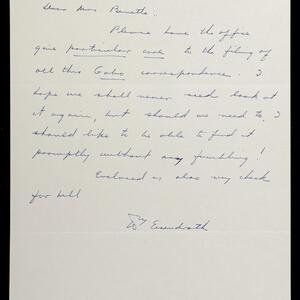 Dear Mrs. Bennett:
Please have the office
give particular care to the filing of
all this Gabo correspondence. I
hope we shall never need look at
it again, but should we need to I
should like to be able to find it
promptly without any fumbling!
Enclosed is also my check
for bill
Wm Eisendrath